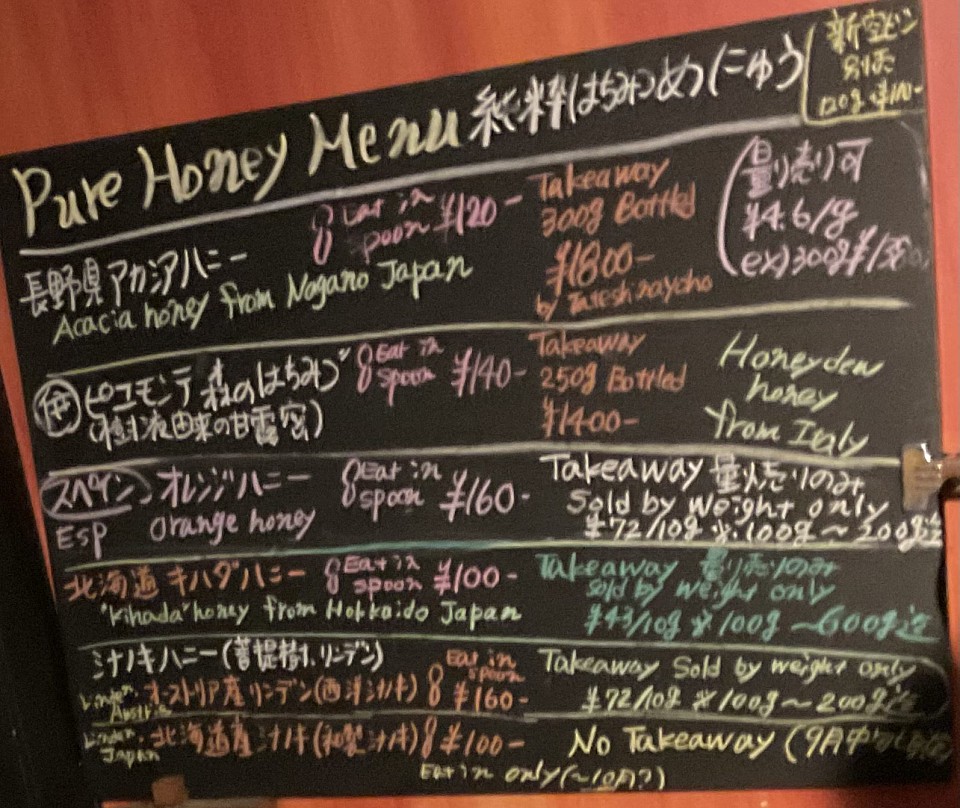 Pure Honey Menu 純粋はちみつめにゅう
新空ビン
別売
120g ¥110-
長野県アカシアハニー
Acacia honey from Nagano Japan
Eat in
spoon ¥120-
Takeaway
300g Bottled
¥1800-
by
量り売り可
¥4.6/g
ex) 300g
伊 ピエモンテ 森のはちみつ
(樹液由来の甘露蜜)
Eat in
spoon ¥140-
Takeaway
250g Bottled
¥1400-
Honeydew
honey
from Italy
スペイン オレンジハニー
ESP orange honey
Eat in
spoon ¥160-
Takeaway 量り売りのみ
Sold by weight only
¥72/10g ※100g〜200g迄
北海道 キハダハニー
"Kihada" honey from Hokkaido Japan
Eat in
spoon ¥100-
Takeaway 量り売りのみ
sold by weight only
¥43/10g ※100g〜600g迄
シナノキハニー(菩提樹、リンデン)
Linden Austria オーストリア産リンデン(西洋シナノキ)
Eat in
spoon
¥160-
Takeaway Sold by weight only
¥72/10g ※100g〜200g迄
Linden Japan 北海道産シナノキ(和製シナノキ) ¥100-
No Takeaway (9月中
Eat in only (〜10月?)